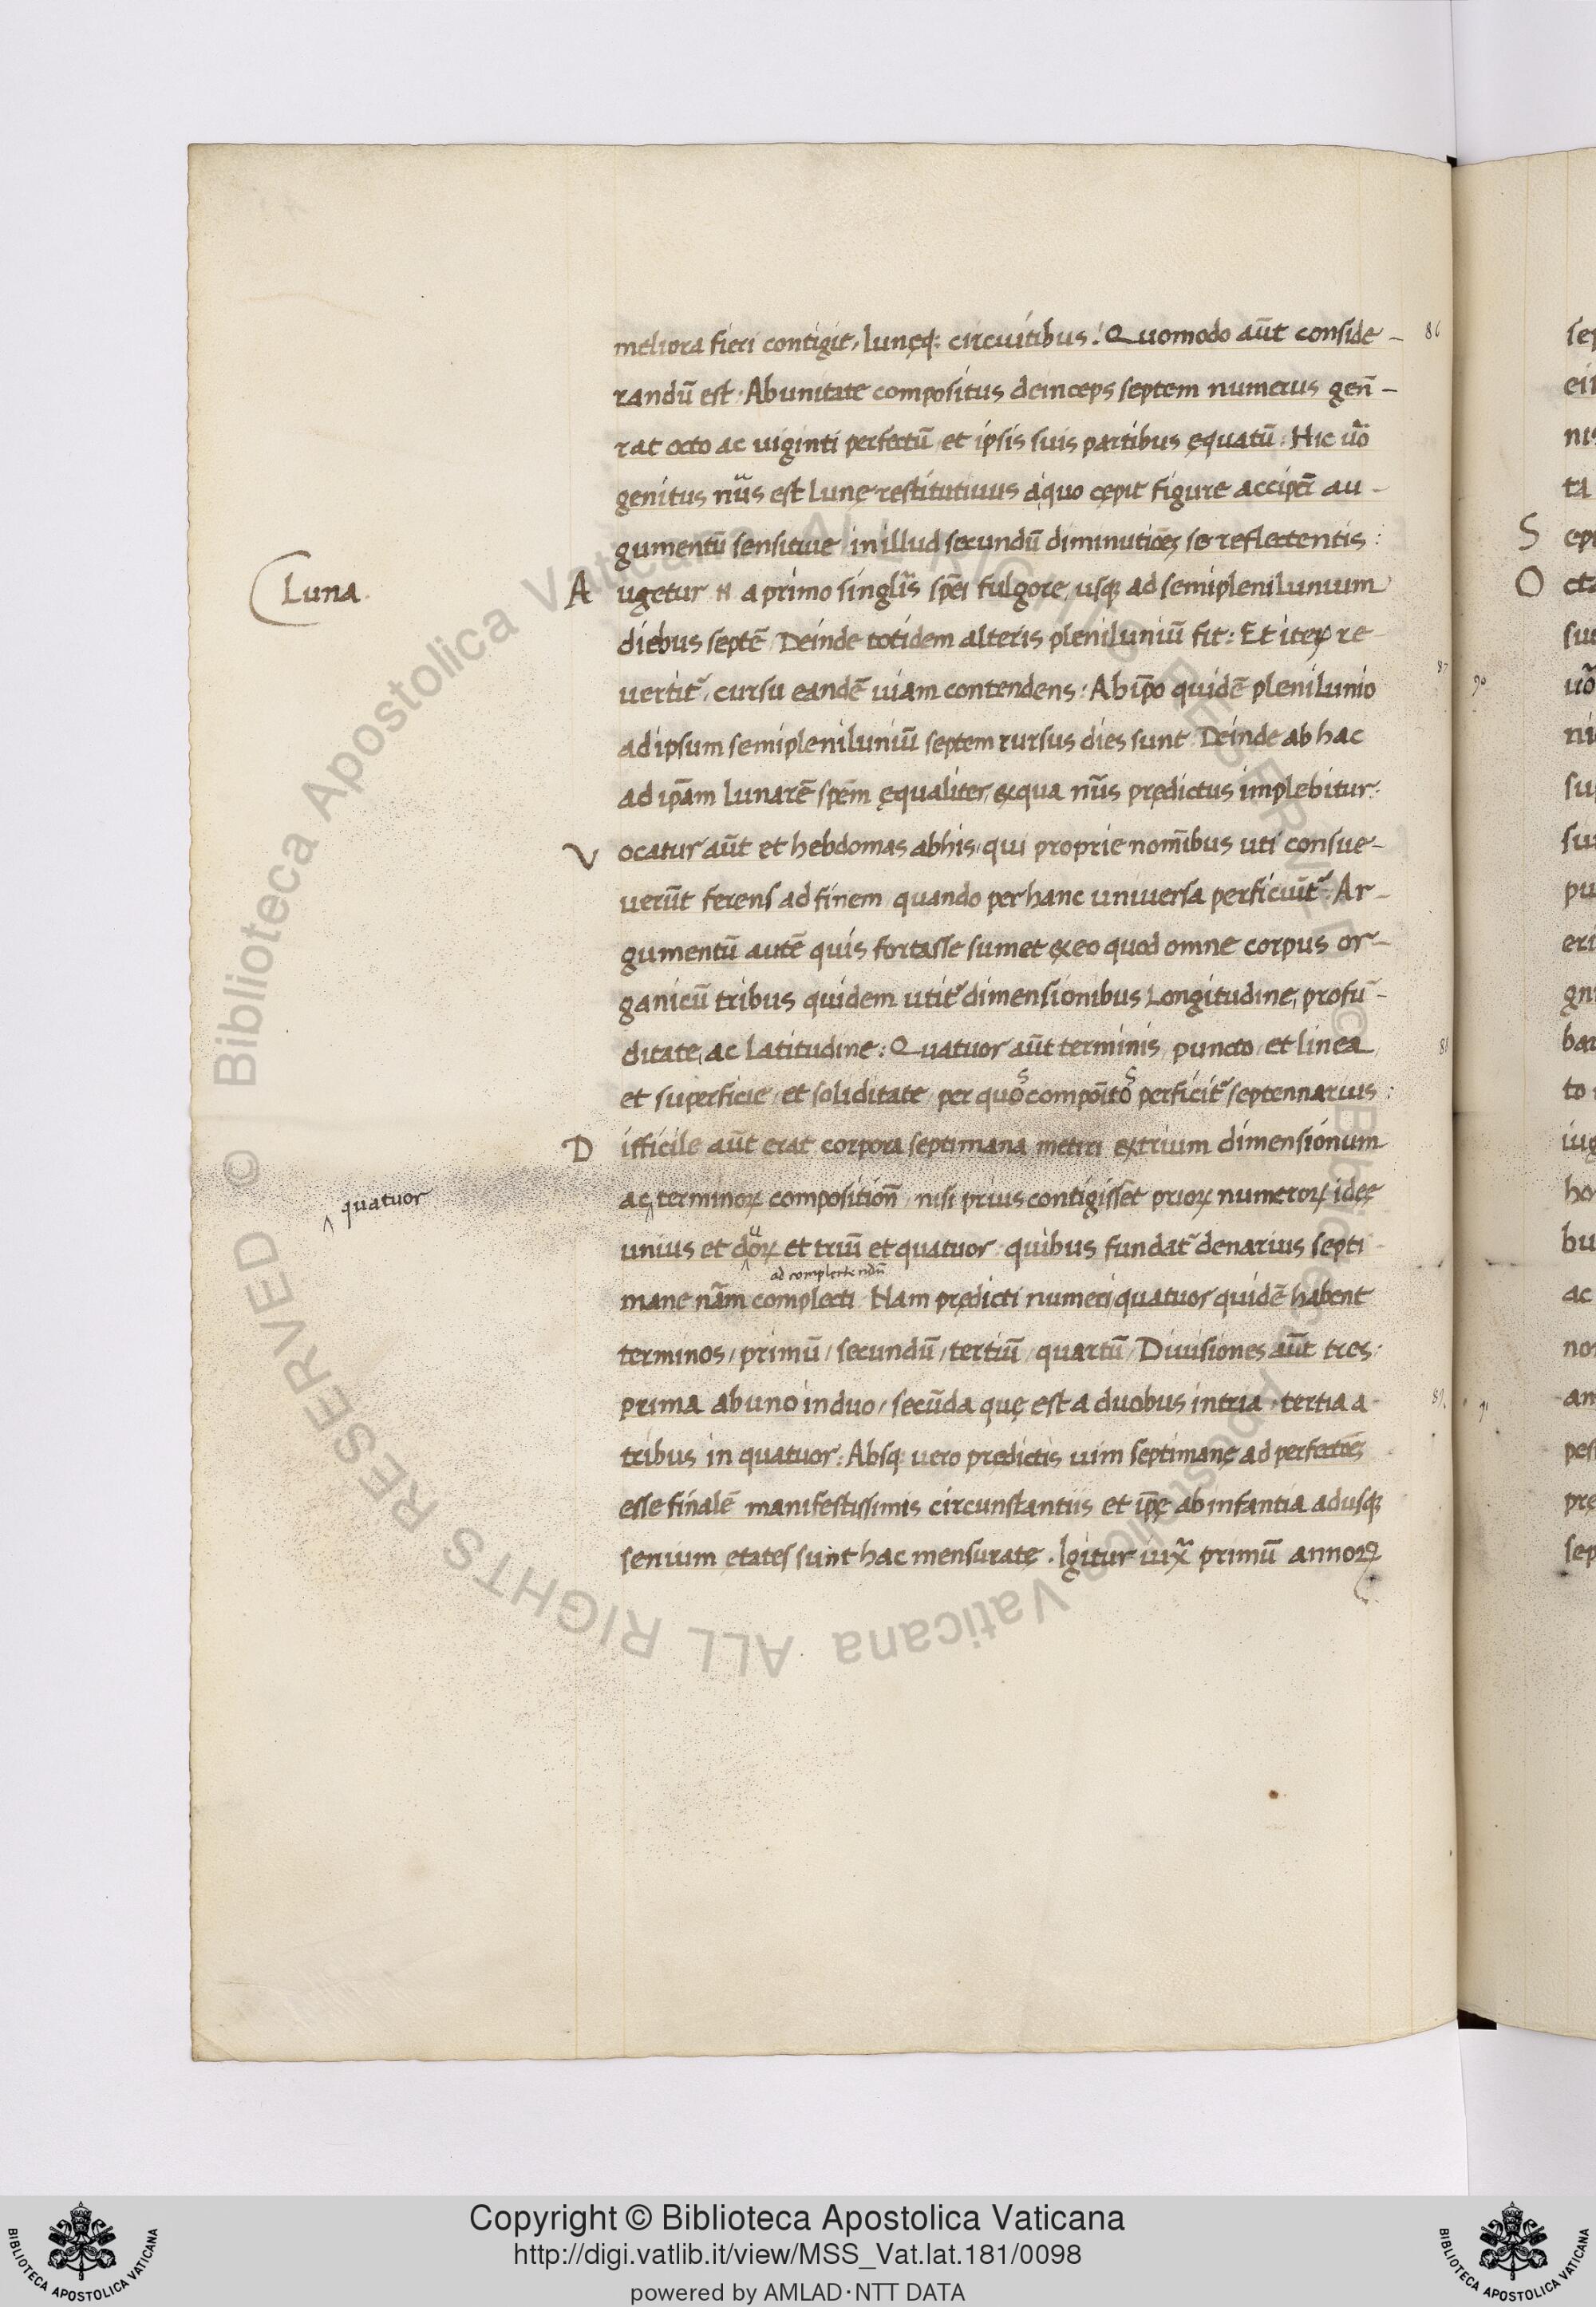 meliora fieri contigit, lunęq; circuitibus: Quomodo aūt conside-
randū est. Ab unitate compositus deinceps septem numerus gen̄-
rat octo ac uiginti perfectū et ipsis suis partibus ęquatū: Hic uō
genitus nūs est Lunę restitutiuus a quo cępit figure acciper̄ au-
gumentū sensitiue in illud secundū diminutiōeȝ se reflectentis:
Luna.
Augetur n̄ a primo singlīs sp̄ei fulgore usq; ad semiplenilunium
diebus septē Deinde totidem alteris pleniluniū fit: Et iteꝝ re
uertit᷑, cursu eandē uiam contendens: Ab ip̄o quidē plenilunio
ad ipsum semipleniluniū septem rursus dies sunt Deinde ab hac
ad ip̄am Lunarē sp̄em ęqualiter, ex qua nūs prędictus implebitur:
Vocatur aūt et hebdomas ab his, qui proprie nom̄ibus uti consue-
uerūt ferens ad finem quando per hanc uniuersa perficiūt᷑: Ar-
gumentū autē quis fortasse sumet ex eo quod omne corpus or-
ganicū tribus quidem utit᷑ dimensionibus Longitudine, profū-
ditate, ac Latitudine: Quatuor aūt terminis, puncto, et linea
et superficie, et soliditate, per quos compōitos perficit᷑ septennarius:
Difficile aūt erat corpora septimana metiri ex trium dimensionum
ac terminoꝝ composition̄ nisi prius contigisset prioꝝ numeroꝝ ideę
quatuor
unius et duoꝝ et triū et quatuor quibus fundat᷑ denarius septi
ad complectendū
mane nām complecti Nam prędicti numeri quatuor quidē habent
terminos, primū, secundū, tertiū, quartū, Diuisiones aūt tres.
prima ab uno in duo, secūda quę est a duobus in tria, tertia a
tribus in quatuor: Absq; uero prędictis uim septimanę ad perfectōeȝ
esse finalē manifestissimis circunstantiis et ip̄ę ab infantia ad usq;
senium ętates sunt hac mensuratę. Igitur iuxᷓ primū annoꝝ
86
87
88
89
90
91
S
O
Copyright © Biblioteca Apostolica Vaticana
http://digi.vatlib.it/view/MSS_Vat.lat.181/0098
powered by AMLAD·NTT DATA
BIBLIOTECA APOSTOLICA VATICANA
BIBLIOTECA APOSTOLICA VATICANA
© Biblioteca Apostolica Vaticana ALL RIGHTS RESERVED © Biblioteca Apostolica Vaticana ALL RIGHTS RESERVED